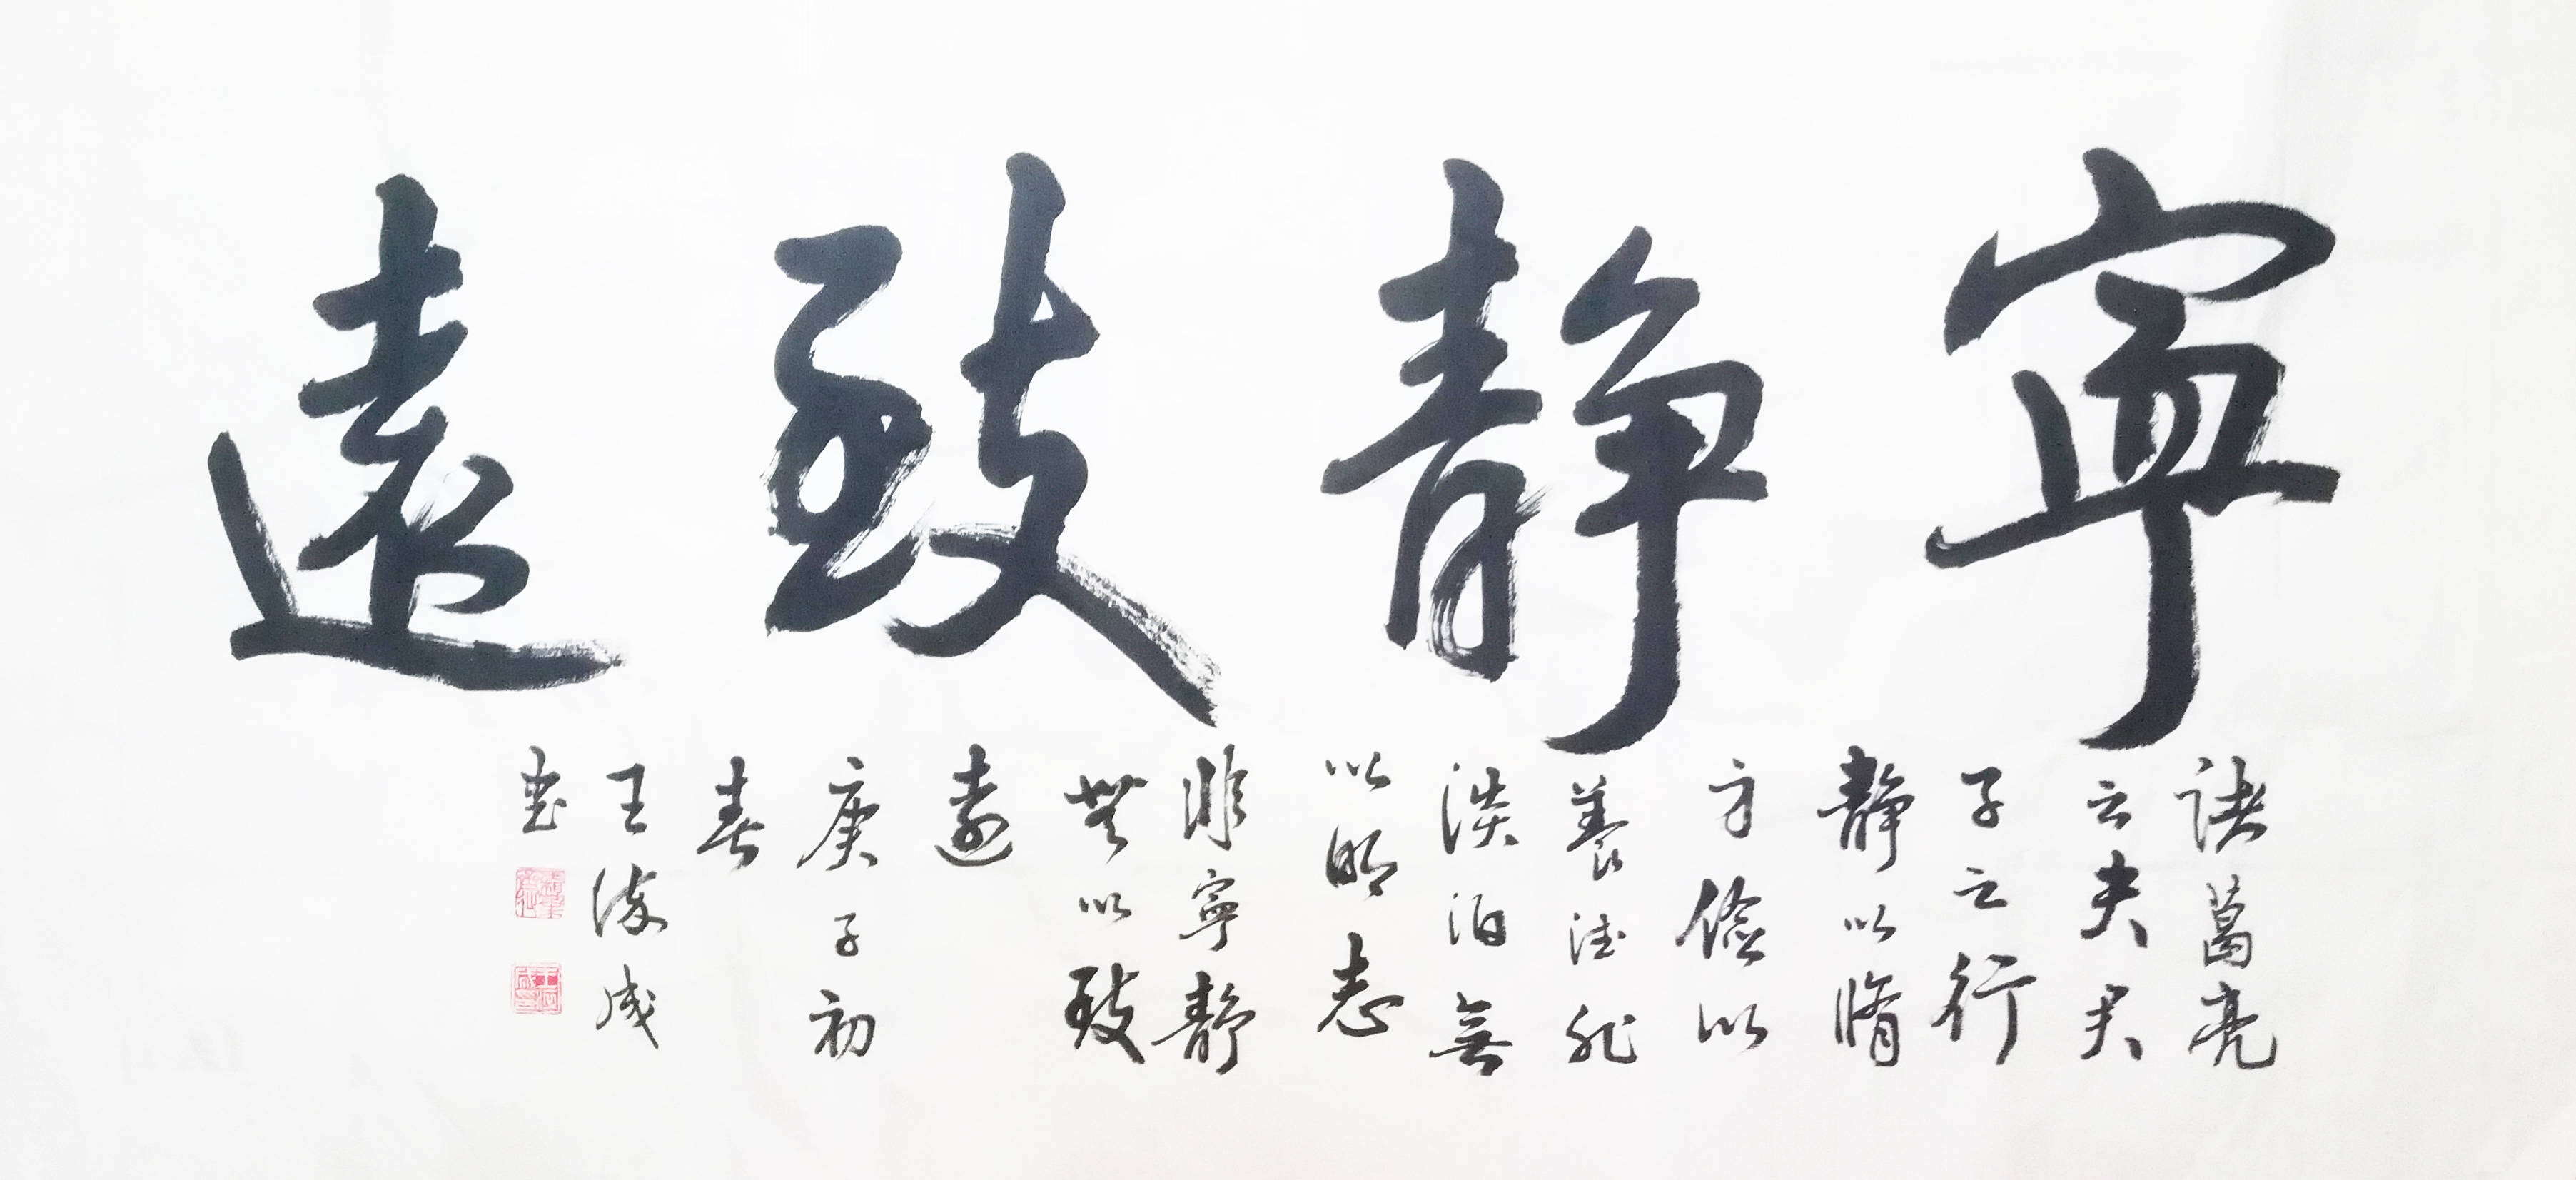 寧静致遠
诸葛亮
云夫君
子之行
静以脩
身儉以
養德非
淡泊無
以明志
非寧静
無以致
遠
庚子初
春
王成
書